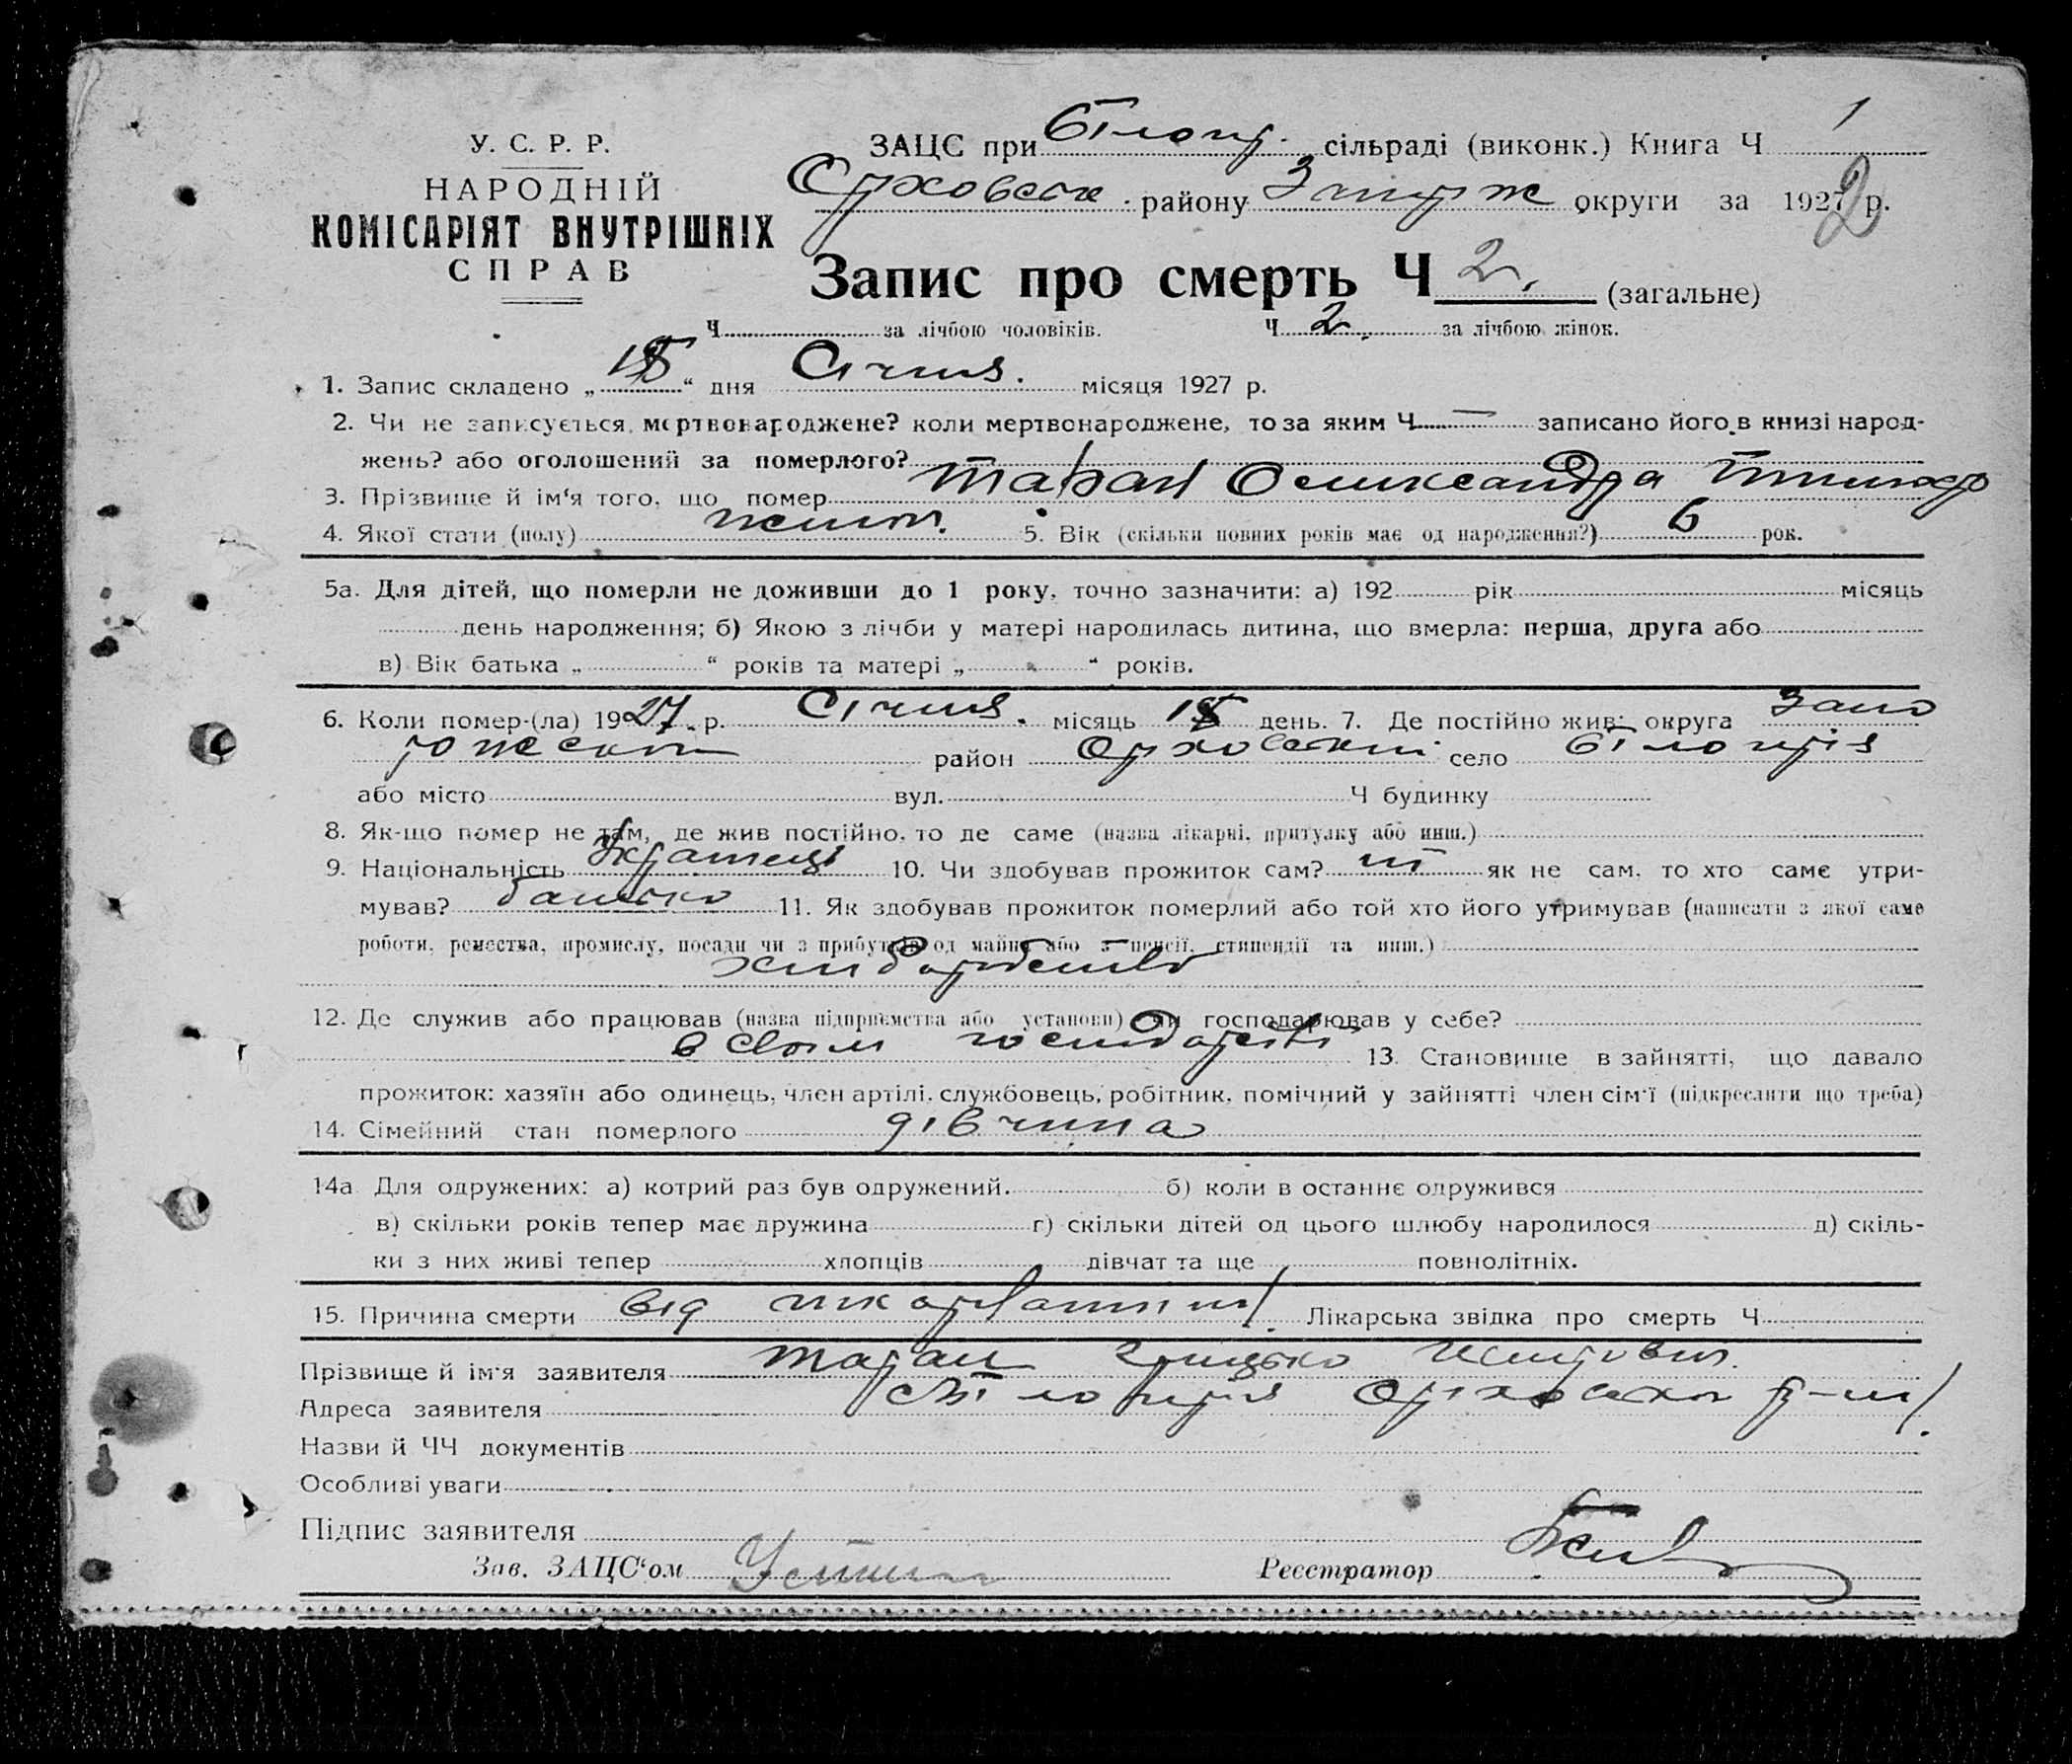 У. С. Р. Р.
НАРОДНІЙ
КОМІСАРІЯТ ВНУТРІШНІХ
СПРАВ
ЗАЦС при Білогр. сільраді (виконк.) Книга Ч 1
Оріховськ. району Запоріж округи за 1927 р.
2
Запис про смерть Ч 2. (загальне)
Ч за лічбою чоловіків. Ч 2. за лічбою жінок.
1. Запис складено „ “ дня Січня. місяця 1927 р.
2. Чи не записується мертвонароджене? коли мертвонароджене, то за яким Ч — записано його в книзі народ-
жень? або оголошений за померлого?
3. Прізвище й ім‘я того, що помер Таран Олександра
4. Якої стати (полу) жіноч. 5. Вік (скільки повних років має од народження?) 6 рок.
5а. Для дітей, що померли не доживши до 1 року, точно зазначити: а) 192 рік місяць
день народження; б) Якою з лічби у матері народилась дитина, що вмерла: перша, друга або
в) Вік батька „ “ років та матері „ “ років.
6. Коли помер-(ла) 1927. р. Січня. місяць день. 7. Де постійно жив: округа Запо
ріжськ район Оріховський село Білогірія
або місто вул. Ч будинку
8. Як-що помер не там, де жив постійно, то де саме (назва лікарні, притулку або инш.)
9. Національність Українці 10. Чи здобував прожиток сам? ні як не сам, то хто саме утри-
мував? батько 11. Як здобував прожиток померлий або той хто його утримував (написати з якої саме
роботи, ремества, промислу, посади чи з прибутків од майна або з пенсії, стипендії та инш.)
хліборобство
12. Де служив або працював (назва підприємства або установи) чи господарював у себе?
в своїм господарстві 13. Становище в зайнятті, що давало
прожиток: хазяїн або одинець, член артілі, службовець, робітник, помічний у зайнятті член сім‘ї (підкреслити що треба)
14. Сімейний стан померлого дівчина
14а Для одружених: а) котрий раз був одружений. б) коли в останнє одружився
в) скільки років тепер має дружина г) скільки дітей од цього шлюбу народилося д) скіль-
ки з них живі тепер хлопців дівчат та ще повнолітніх.
15. Причина смерти від шкарлатини. Лікарська звідка про смерть Ч
Прізвище й ім‘я заявителя Таран Грицько
Адреса заявителя с Білогірія Оріховськ р-ну.
Назви й ЧЧ документів
Особливі уваги
Підпис заявителя
Зав. ЗАЦС‘ом Реєстратор